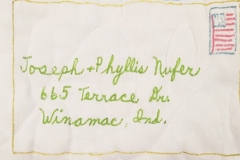 Joseph + Phyllis Nufer
665 Terrace Dr.
Winamac, Ind.